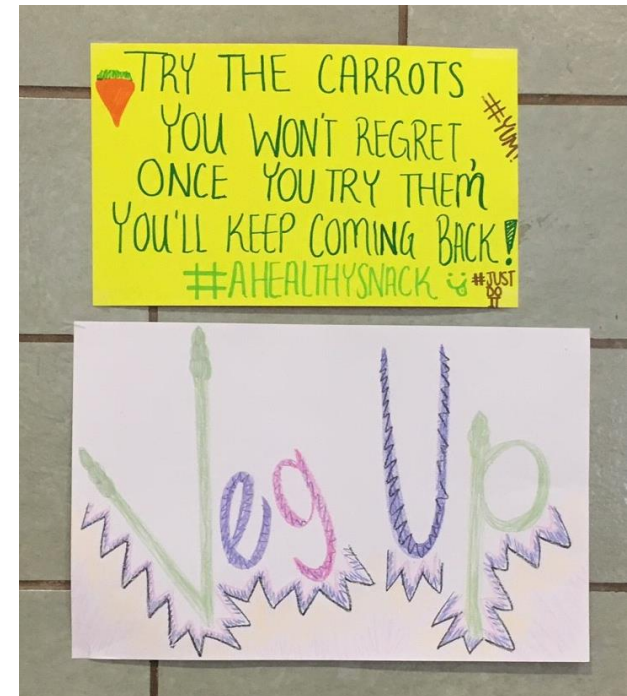 TRY THE CARROTS
#YUM!
YOU WON'T REGRET,
ONCE YOU TRY THEM
YOU'LL KEEP COMING BACK!
#AHEALTHYSNACK #JUST
DO
IT
Veg Up